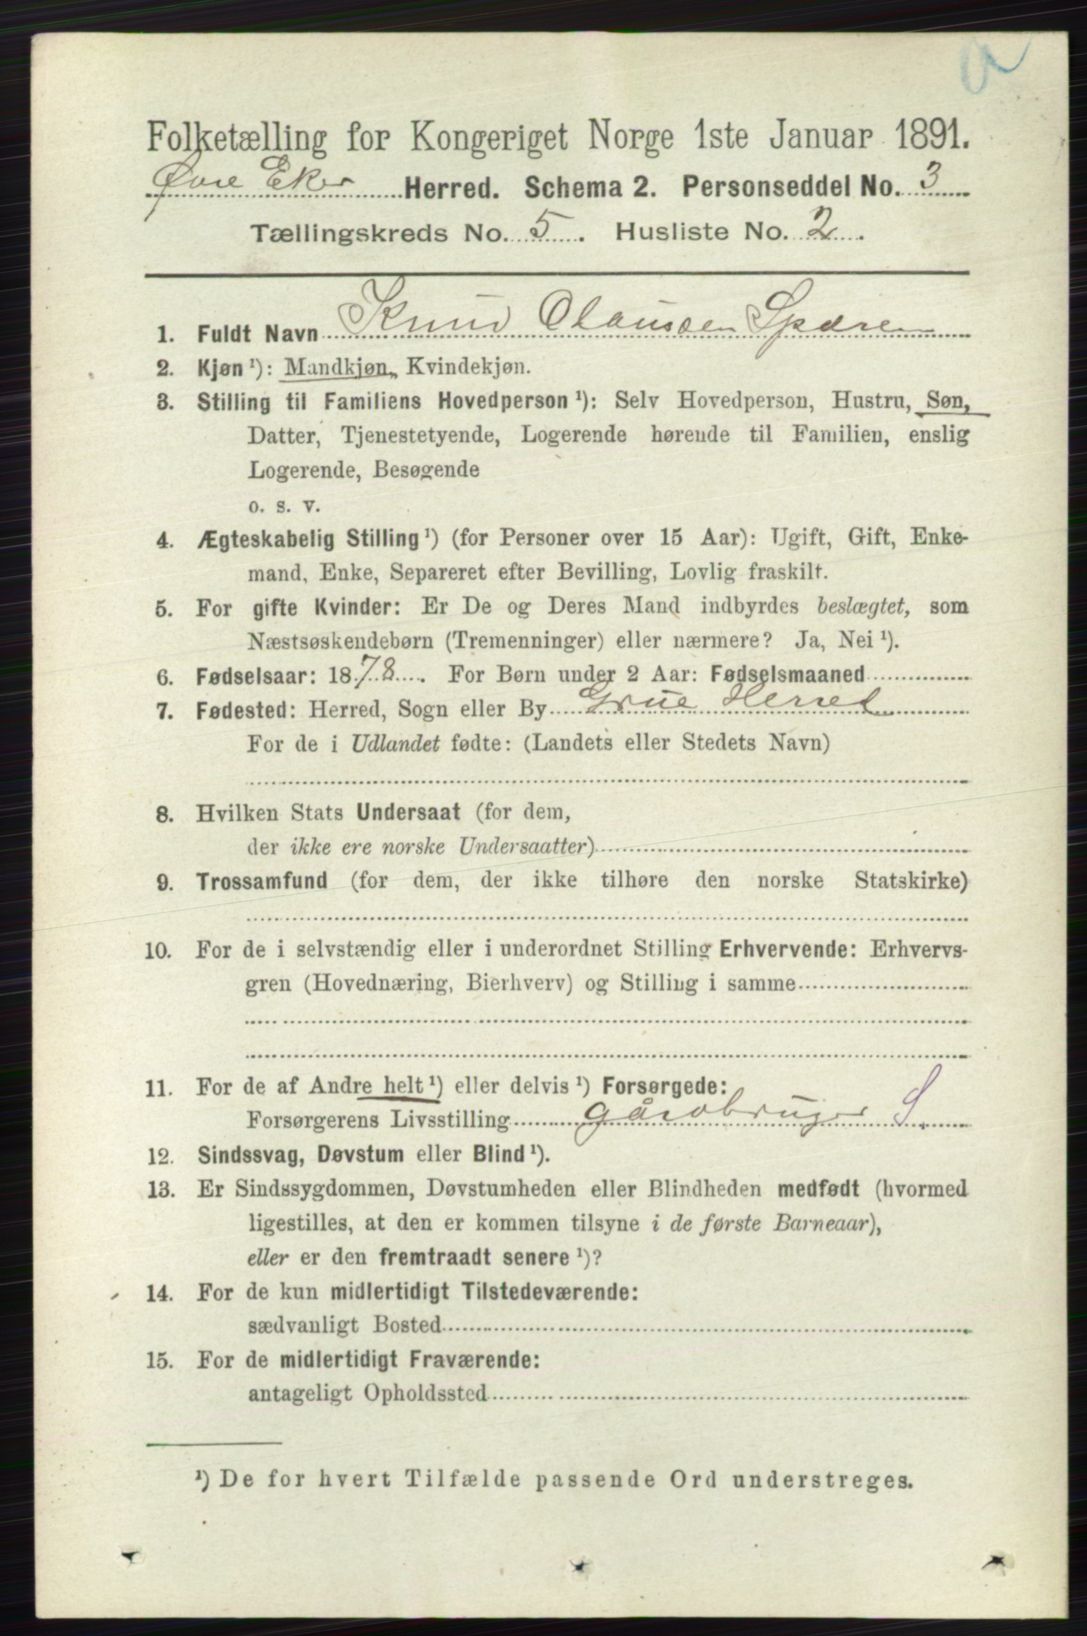 Folketælling for Kongeriget Norge 1ste Januar 1891.
Øvre Eker Herred. Schema 2. Personseddel No. 3
Tællingskreds No. 5. Husliste No. 2.
1. Fuldt Navn Knud Claussen Spæren
2. Kjøn ¹): Mandkjøn, Kvindekjøn.
3. Stilling til Familiens Hovedperson ¹): Selv Hovedperson, Hustru, Søn,
Datter, Tjenestetyende, Logerende hørende til Familien, enslig
Logerende, Besøgende
o. s. v.
4. Ægteskabelig Stilling ¹) (for Personer over 15 Aar): Ugift, Gift, Enke-
mand, Enke, Separeret efter Bevilling, Lovlig fraskilt.
5. For gifte Kvinder: Er De og Deres Mand indbyrdes beslægtet, som
Næstsøskendebørn (Tremenninger) eller nærmere? Ja, Nei ¹).
6. Fødselsaar: 1878. For Børn under 2 Aar: Fødselsmaaned
7. Fødested: Herred, Sogn eller By Grue Herred
For de i Udlandet fødte: (Landets eller Stedets Navn)
8. Hvilken Stats Undersaat (for dem,
der ikke ere norske Undersaatter)
9. Trossamfund (for dem, der ikke tilhøre den norske Statskirke)
10. For de i selvstændig eller i underordnet Stilling Erhvervende: Erhvervs-
gren (Hovednæring, Bierhverv) og Stilling i samme
11. For de af Andre helt ¹) eller delvis ¹) Forsørgede:
Forsørgerens Livsstilling gårdbruger S.
12. Sindssvag, Døvstum eller Blind ¹).
13. Er Sindssygdommen, Døvstumheden eller Blindheden medfødt (hvormed
ligestilles, at den er kommen tilsyne i de første Barneaar),
eller er den fremtraadt senere ¹)?
14. For de kun midlertidigt Tilstedeværende:
sædvanligt Bosted
15. For de midlertidigt Fraværende:
antageligt Opholdssted
¹) De for hvert Tilfælde passende Ord understreges.